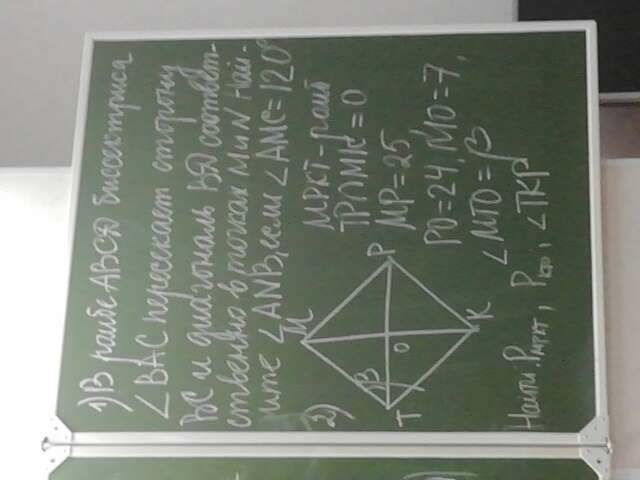 1) В ромбе ABCD биссектриса
∠BAC пересекает сторону
BC и диагональ BD соответ-
ственно в точках M и N. Най-
дите ∠ANB, если ∠AMC=120°
2)
M
β
T
O
P
K
MPKT - ромб
TP∩MK = O
MP=25,
PO=24, MO=7,
∠MTO = β
Найти: P_MPKT, P_KTO, ∠TKP